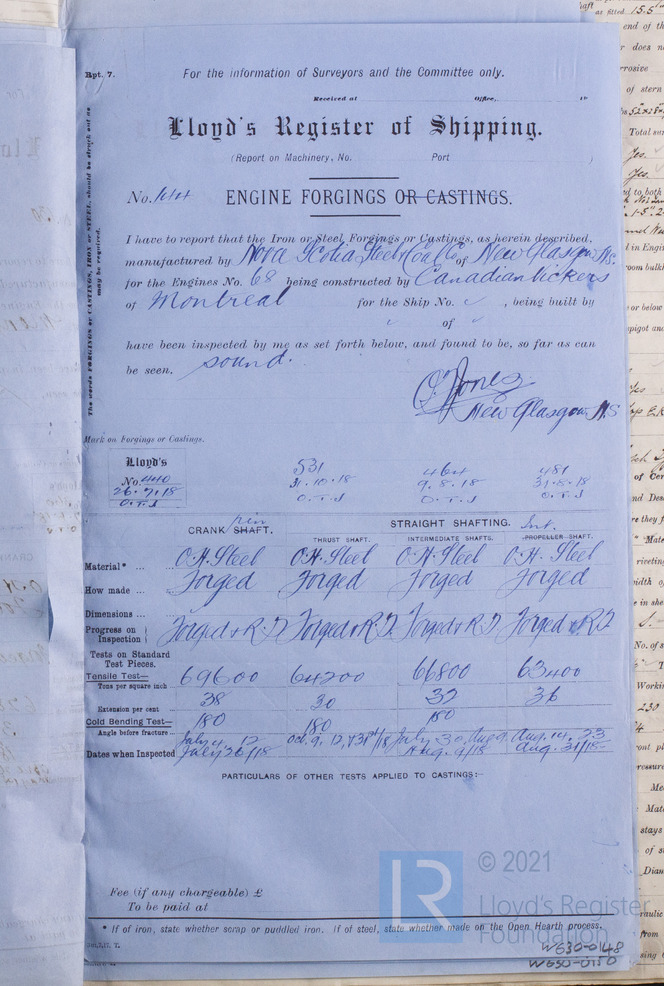 Rpt. 7.
For the information of Surveyors and the Committee only.
Received at Office, 19
Lloyd's Register of Shipping.
(Report on Machinery, No. Port )
No. ENGINE FORGINGS OR CASTINGS.
The words FORGINGS or CASTINGS, IRON or STEEL, should be struck out as may be required.
I have to report that the Iron or Steel Forgings or Castings, as herein described,
manufactured by Nova Scotia Steel & Coal Co of New Glasgow N.S.
for the Engines No. 68 being constructed by Canadian Vickers
of Montreal for the Ship No. ✓ , being built by
✓ of ✓
have been inspected by me as set forth below, and found to be, so far as can
be seen, sound.
O. T. Jones
New Glasgow N.S
Mark on Forgings or Castings.
Lloyd's
No. 440 531 464 481
26.7.18 31.10.18 9.8.18 31.8.18
O.T.J O.T.J O.T.J O.T.J
CRANK pin SHAFT. STRAIGHT SHAFTING. Int.
THRUST SHAFT. INTERMEDIATE SHAFTS. PROPELLER SHAFT.
Material* ... O.H. Steel O.H. Steel O.H. Steel O.H. Steel
How made ... Forged Forged Forged Forged
Dimensions ...
Progress on Inspection Forged & R.D Forged & R.D Forged & R.D Forged & R.D
Tests on Standard Test Pieces.
Tensile Test— 69600 64200 66800 63400
Tons per square inch
Extension per cent 38 30 32 36
Cold Bending Test— 180 180 180
Angle before fracture ...
Dates when Inspected July 4, 12 July 26/18 Oct. 9, 12, & 31st/18 July 30, Aug 9. Aug. 9/18 Aug. 14, 23 Aug. 31/18
PARTICULARS OF OTHER TESTS APPLIED TO CASTINGS:—
Fee (if any chargeable) £
To be paid at
* If of iron, state whether scrap or puddled iron. If of steel, state whether made on the Open Hearth process.
LR © 2021
Lloyd's Register
Foundation
W630-0148
W630-0150